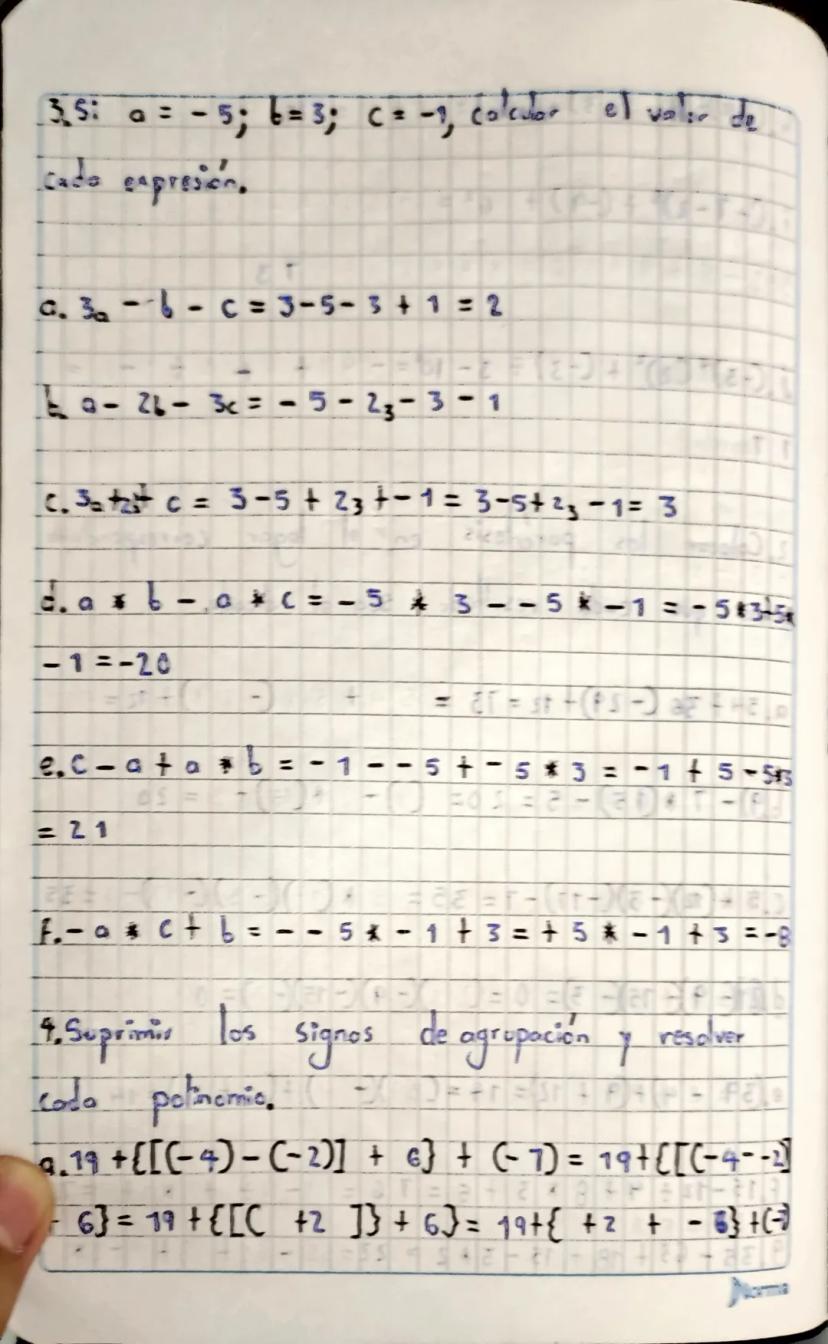 3. Si: a = - 5; b = 3; c = -1, calcular el valor de
cada expresión.
a. 3a - b - c = 3 - 5 - 3 + 1 = 2
b. a - 2b - 3c = - 5 - 23 - 3 - 1
c. 3a + 2b + c = 3 - 5 + 23 + - 1 = 3 - 5 + 23 - 1 = 3
d. a * b - a * c = - 5 * 3 - - 5 * - 1 = - 5 * 3 + 5 *
- 1 = -20
e. c - a + a * b = - 1 - - 5 + - 5 * 3 = - 1 + 5 - 5*3
= 21
f. - a * c + b = - - 5 * - 1 + 3 = + 5 * - 1 + 3 = -8
4. Suprimir los signos de agrupación y resolver
cada polinomio.
a. 19 + {[(-4) - (-2)] + 6} + (-7) = 19 + {[(-4 - -2]
+ 6} = 19 + {[( +2 ]} + 6} = 19 + { +2 + - 6} + (-7
Norma